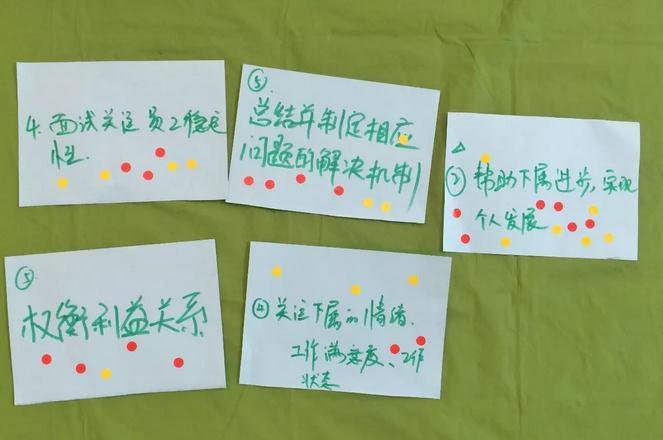 4. 面试关注员工稳定
性.
⑤.
总结并制定相应
问题的解决机制
△
② 帮助下属进步,实现
个人发展
③
权衡利益关系
④ 关注下属的情绪.
工作满意度、工作
状态